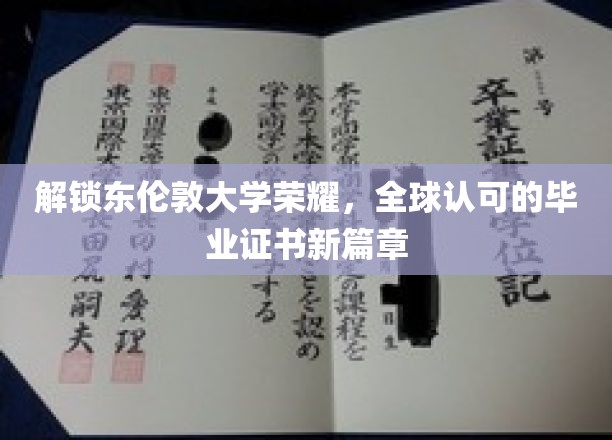 解锁东伦敦大学荣耀，全球认可的毕
业证书新篇章
第 号
卒業証書 学位記
日生
本学商学部 定の課程を
修めて本学 ことを認め
学士(商学)の学 する
平成
東京国際大学 田村愛理
東京国際大 長田尻嗣夫